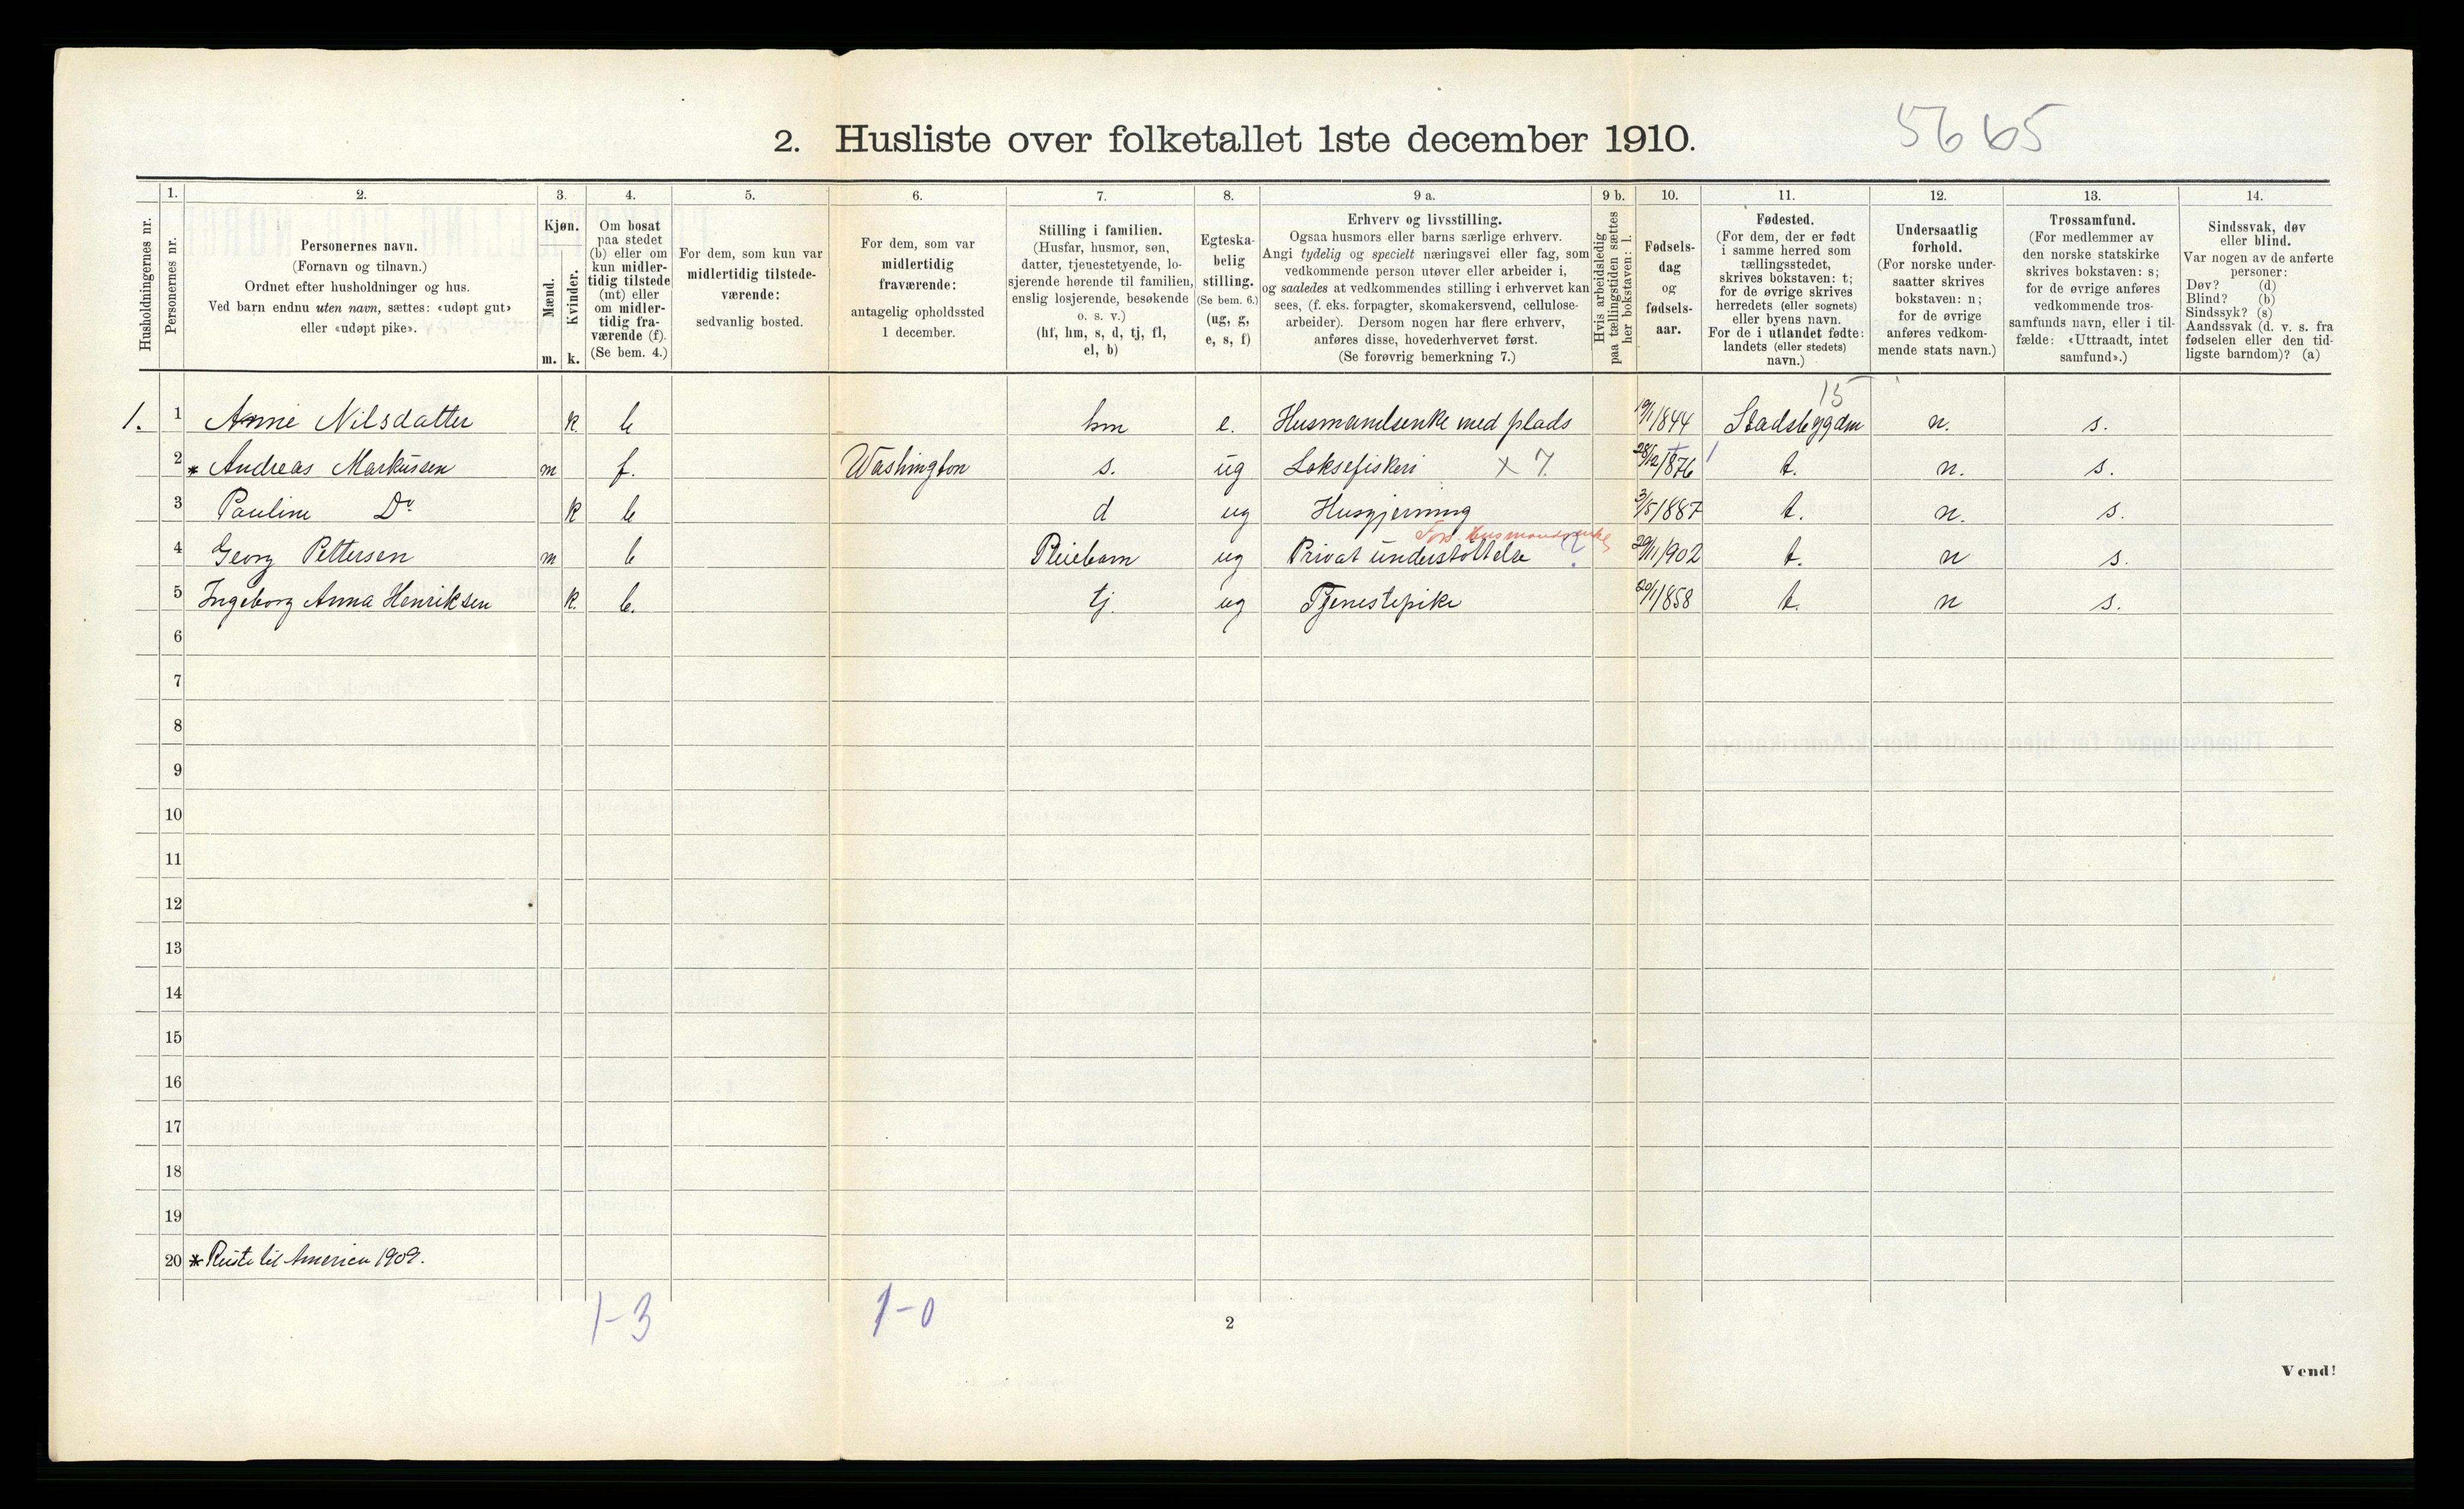 5665
2. Husliste over folketallet 1ste december 1910.
Husholdningernes nr.
1.
Personernes nr.
2.
Personernes navn.
(Fornavn og tilnavn.)
Ordnet efter husholdninger og hus.
Ved barn endnu uten navn, sættes: «udøpt gut»
eller «udøpt pike».
3.
Kjøn.
Mænd.
Kvinder.
m. k.
4.
Om bosat
paa stedet
(b) eller om
kun midler-
tidig tilstede
(mt) eller
om midler-
tidig fra-
værende (f).
(Se bem. 4.)
5.
For dem, som kun var
midlertidig tilstede-
værende:
sedvanlig bosted.
6.
For dem, som var
midlertidig
fraværende:
antagelig opholdssted
1 december.
7.
Stilling i familien.
(Husfar, husmor, søn,
datter, tjenestetyende, lo-
sjerende hørende til familien,
enslig losjerende, besøkende
o. s. v.)
(hf, hm, s, d, tj, fl,
el, b)
8.
Egteska-
belig
stilling.
(Se bem. 6.)
(ug, g,
e, s, f)
9 a.
Erhverv og livsstilling.
Ogsaa husmors eller barns særlige erhverv.
Angi tydelig og specielt næringsvei eller fag, som
vedkommende person utøver eller arbeider i,
og saaledes at vedkommendes stilling i erhvervet kan
sees, (f. eks. forpagter, skomakersvend, cellulose-
arbeider). Dersom nogen har flere erhverv,
anføres disse, hovederhvervet først.
(Se forøvrig bemerkning 7.)
9 b.
Hvis arbeidsledig
paa tællingstiden sættes
her bokstaven: l.
10.
Fødsels-
dag
og
fødsels-
aar.
11.
Fødested.
(For dem, der er født
i samme herred som
tællingsstedet,
skrives bokstaven: t;
for de øvrige skrives
herredets (eller sognets)
eller byens navn.
For de i utlandet fødte:
landets (eller stedets)
navn.)
12.
Undersaatlig
forhold.
(For norske under-
saatter skrives
bokstaven: n;
for de øvrige
anføres vedkom-
mende stats navn.)
13.
Trossamfund.
(For medlemmer av
den norske statskirke
skrives bokstaven: s;
for de øvrige anføres
vedkommende tros-
samfunds navn, eller i til-
fælde: «Uttraadt, intet
samfund».)
14.
Sindssvak, døv
eller blind.
Var nogen av de anførte
personer:
Døv? (d)
Blind? (b)
Sindssyk? (s)
Aandssvak (d. v. s. fra
fødselen eller den tid-
ligste barndom)? (a)
15
1. 1 Anne Nilsdatter k. b hm e. Husmandsenke med plads 19/1 1844 Stadsbygden n. s.
2 * Andreas Markussen m f. Washington s. ug Laksefiskeri x 7. 28/12 1876 t. n. s.
3 Pauline Do k b d ug Husgjerning 3/5 1887 t. n. s.
Fors. Husmandsenke
4 Georg Pettersen m b Pleiebarn ug Privat understøttelse ? 29/11 1902 t. n s.
5 Ingeborg Anna Henriksen k. b. tj. ug Tjenestepike 20/1 1858 t. n s.
6
7
8
9
10
11
12
13
14
15
16
17
18
19
20 * Reiste til America 1909.
1-3 1-0
2
Vend!